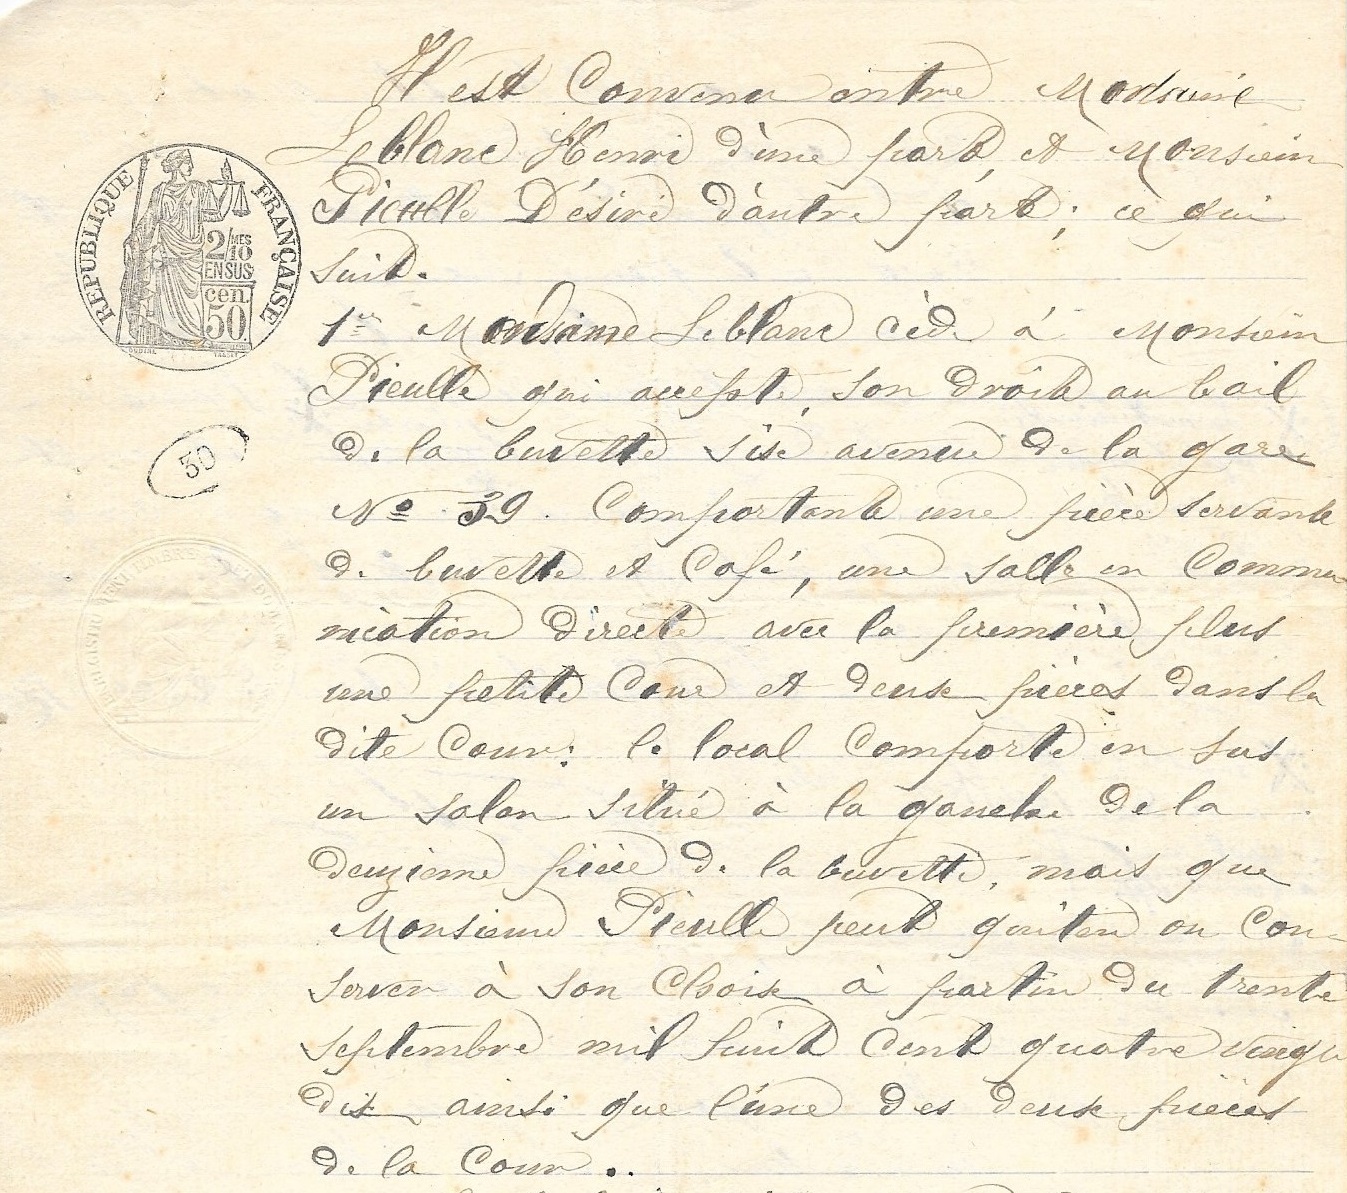 Il est Convenu entre Monsieur
Leblanc Henri d'une part et Monsieur
Pieulle Désiré d'autre part; ce qui
suit.
1er Monsieur Leblanc cède à Monsieur
Pieulle qui accepte, son droit au bail
de la buvette sise avenue de la gare
No 39. Comportant une pièce servant
de buvette et Café, une salle en Commu-
nication directe avec la première plus
une petite Cour et deux pièces dans la
dite Cour; le local Comporte en sus
un salon situé à la gauche de la
deuzième pièce de la buvette, mais que
Monsieur Pieulle peut quiter ou Con-
server à son Choix à partir du trente
septembre mil huit Cent quatre vingt
dix ainsi que l'une des deux pièces
de la Cour..
REPUBLIQUE FRANÇAISE
2/10 MES
EN SUS
cen.
50
30